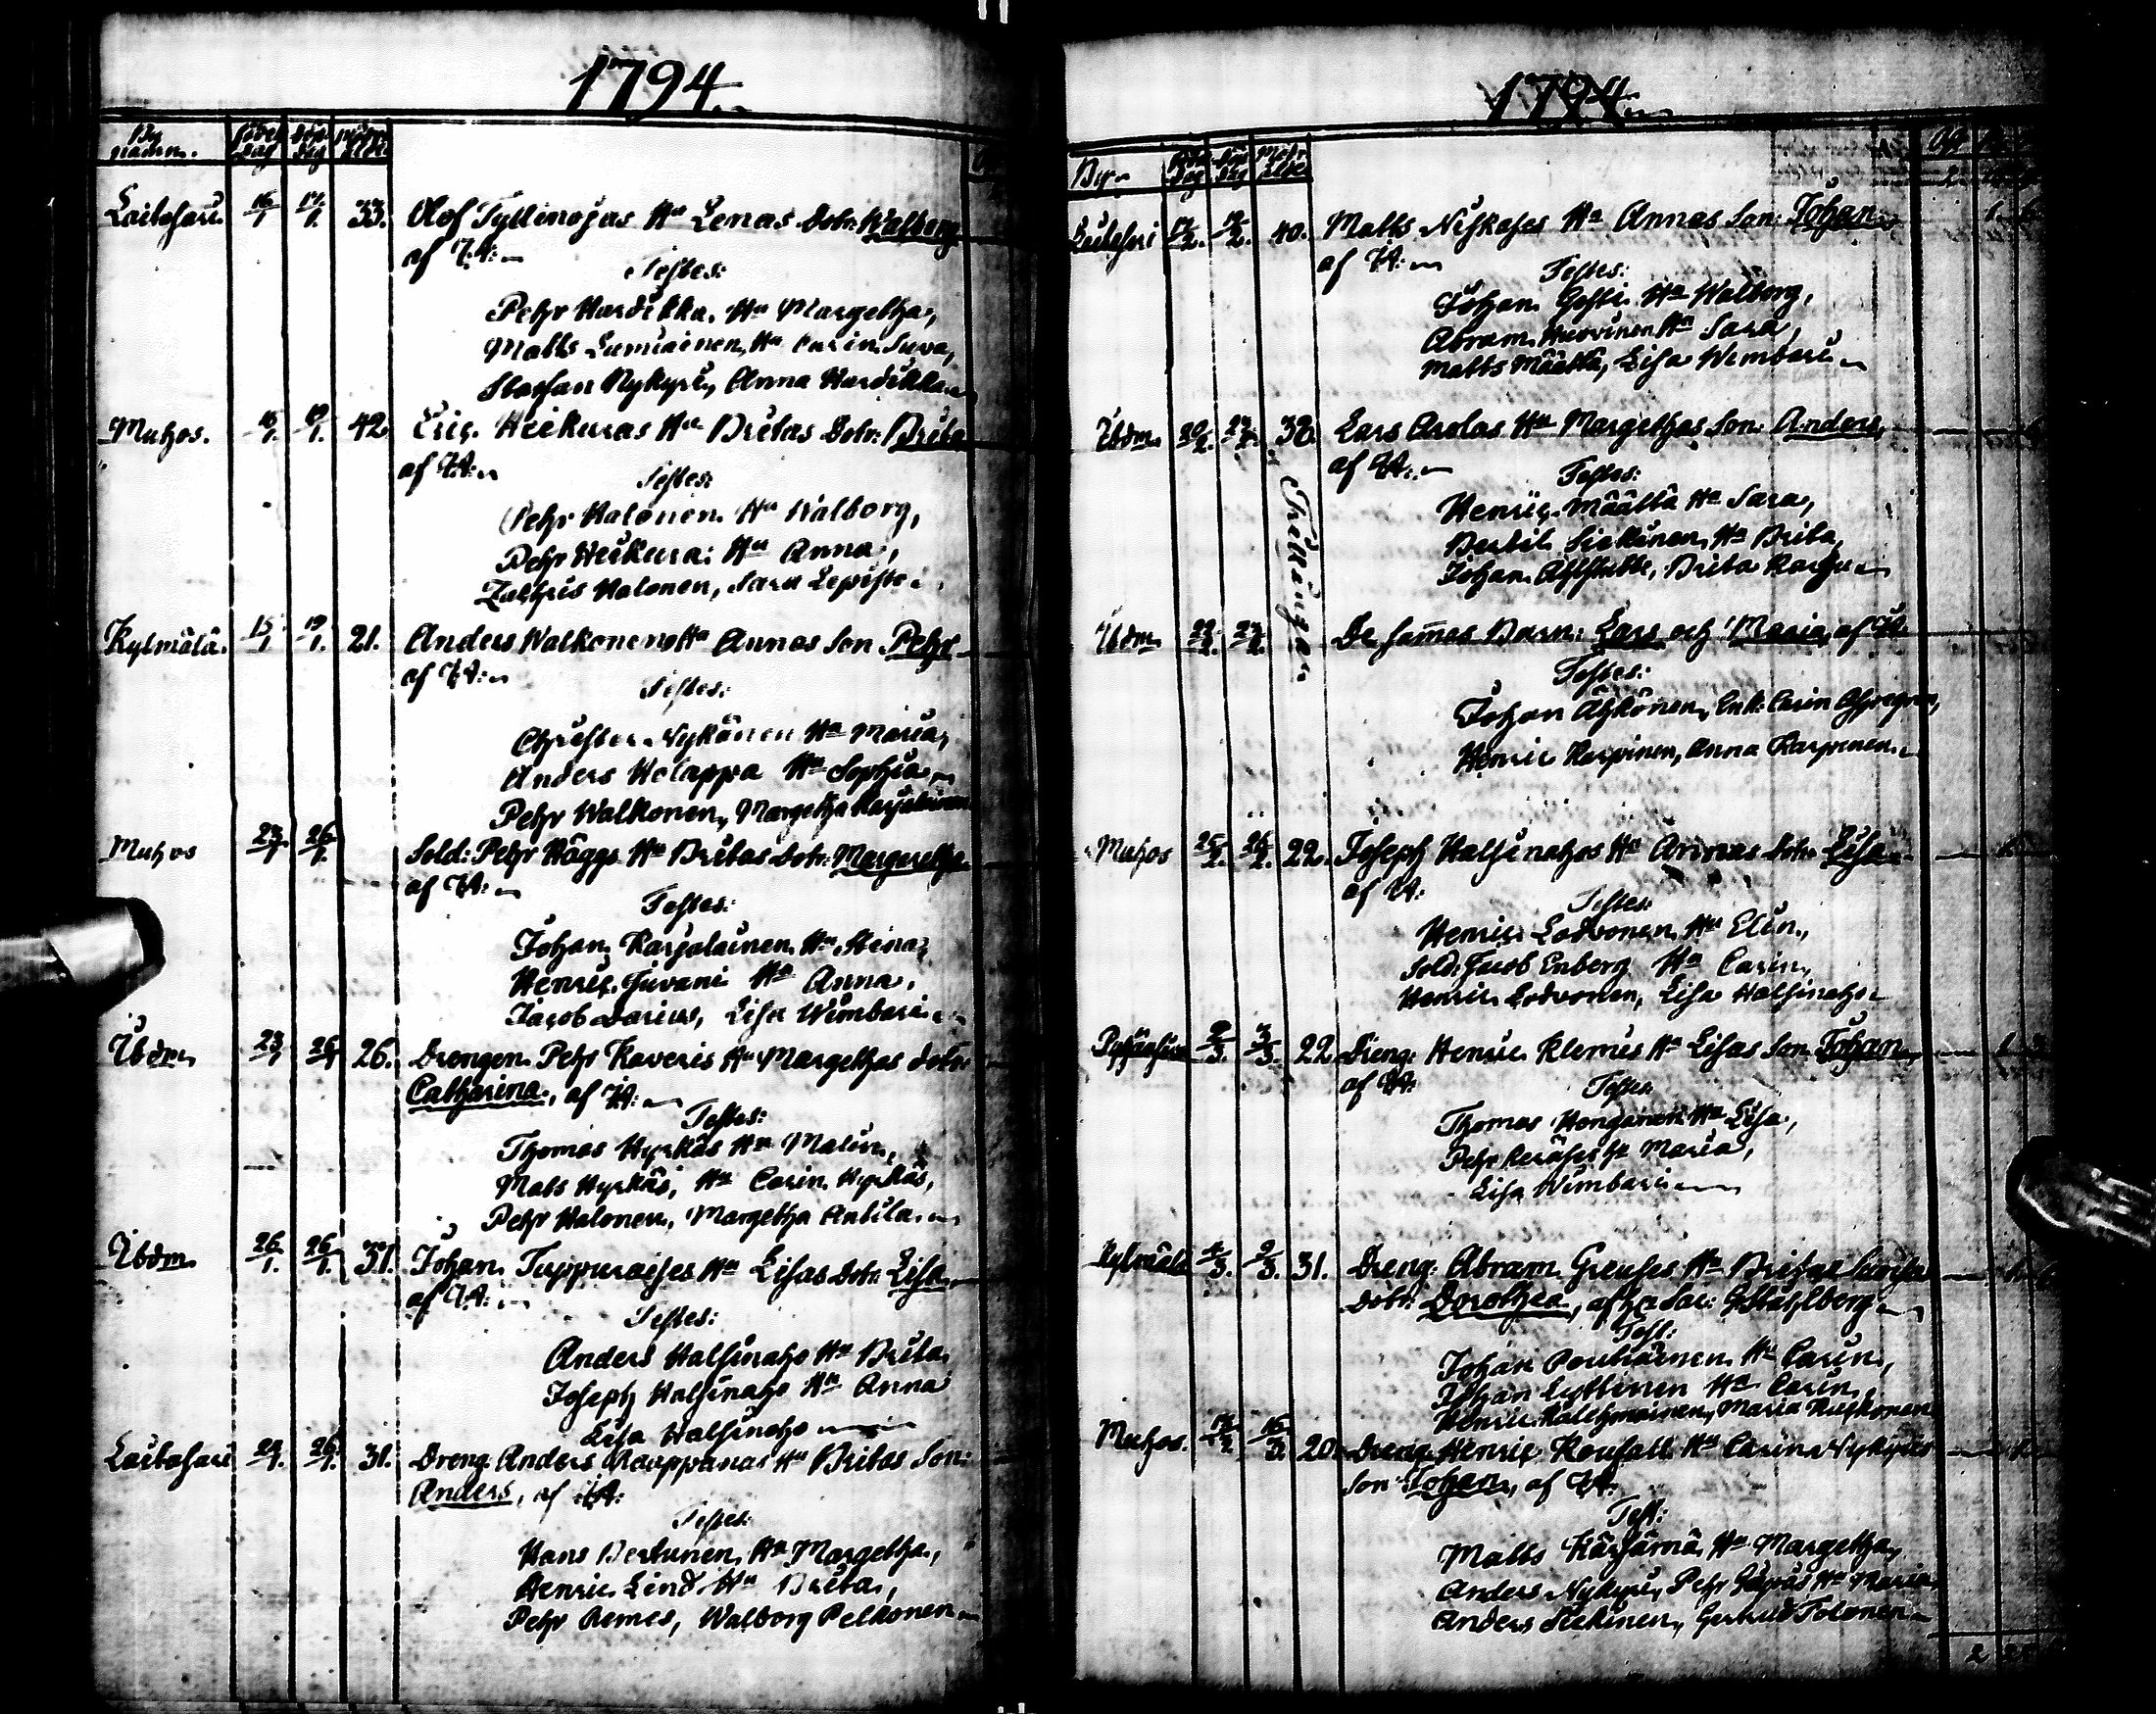 1794.
By namn. Födel Dag Döp Dag Mödr: Åldr
Laitasari 16/1 17/1. 33. Olof Tyllinojas Hu Lenas Dotr: Walborg
af Ä:
Testes:
Pehr Hardikka, Hu Margetha,
Matts Lumiainen, Hu Carin Suva,
Staffan Nykyri, Anna Hardikka
Muhos. 16/1. 19/1. 42. Eric Heikuras Hu Britas Dotr: Brita
af Ä:
Testes:
Pehr Halonen Hu Walborg,
Pehr Heikura: Hu Anna,
Zachris Halonen, Sara Lepistö
Kylmälä. 15/1 19/1. 21. Anders Walkonens Hu Annas Son Pehr
af Ä:
Testes:
Christer Nykänen Hu Maria,
Anders Holappa Hu Sophia,
Pehr Walkonen, Margetha Karjalainen
Muhos 23/1 26/1. Sold: Pehr Häggs Hu Britas Dotr: Margaretha
af Ä:
Testes:
Johan Karjalainen Hu Stina,
Henric Juvani Hu Anna,
Jacob Larius, Lisa Wimbari
Ibdm 23/1 26/1 26. Drengen Pehr Kaveris Hu Margethas dotr:
Catharina, af Ä:
Testes:
Thomas Hyrkäs Hu Malin,
Mats Hyrkäs, Hu Carin Hyrkäs,
Pehr Halonen, Margetha Antila.
Ibdm 26/1. 26/1. 31. Johan Tuppuraises Hu Lisas Dotr: Lisa
af Ä:
Testes:
Anders Halsinaho Hu Brita
Joseph Halsinaho Hu Anna
Lisa Halsinaho
Laitasari 24/1. 26/1. 31. Dreng: Anders Kauppanas Hu Britas Son:
Anders, af Ä:
Testes:
Hans Pertunen, Hu Margetha,
Henric Lind Hu Brita,
Pehr Remes, Walborg Pelkonen
1794.
By Födel Dag Döp Dag Modr: Åldr
Laitasari 17/2. 19/2. 40. Matts Niskases Hu Annas Son: Johan
af Ä:
Testes:
Johan Gosti Hu Walborg,
Abram Hurvinen Hu Sara,
Matts Määttä, Lisa Wimbari
Ibdm 20/2. 38 Lars Arolas Hu Margethas Son: Anders
af Ä:
Testes:
Henric Määttä Hu Sara,
Bertil Siekinen, Hu Brita,
Johan Ahlstubbe, Brita Karhu
Trillingar
Ibdm De sammas Barn: Lars och Maria, af Ä:
Testes:
Johan Ähkönen, Enk: Carin Ahlgren,
Henric Karpinen, Anna Karpinen
Muhos 25/2. 26/2. 22. Joseph Halsinahos Hu Annas Dotr: Lisa
af Ä:
Testes:
Henric Lodvonen Hu Elin,
Sold: Jacob Enberg Hu Carin,
Henric Lodvonen, Lisa Halsinaho
2/3. 3/3. 22 Dreng: Henric Klemis Hu Lisas Son Johan
af Ä:
Testes
Thomas Hongainen Hu Lisa,
Pehr Keränen Hu Maria,
Lisa Wimbari
Kylmälä 4/3. 9/3. 31. Dreng: Abram Greuses Hu Britas
Dotr: Dorothea, af Hr Sac: G. Ståhlberg
Test:
Johan Poutiainen Hu Carin,
Johan Lyttinen Hu Carin,
Henric Kaltemainen, Maria
Muhos. 16/3. 20 Dreng Henric Koufalt Hu Carin Nykyris
son Johan, af Ä:
Test:
Matts Kärsämä Hu Margetha,
Anders Nykyri, Pehr Hu Maria,
Anders Siekinen, Gertrud Tolonen